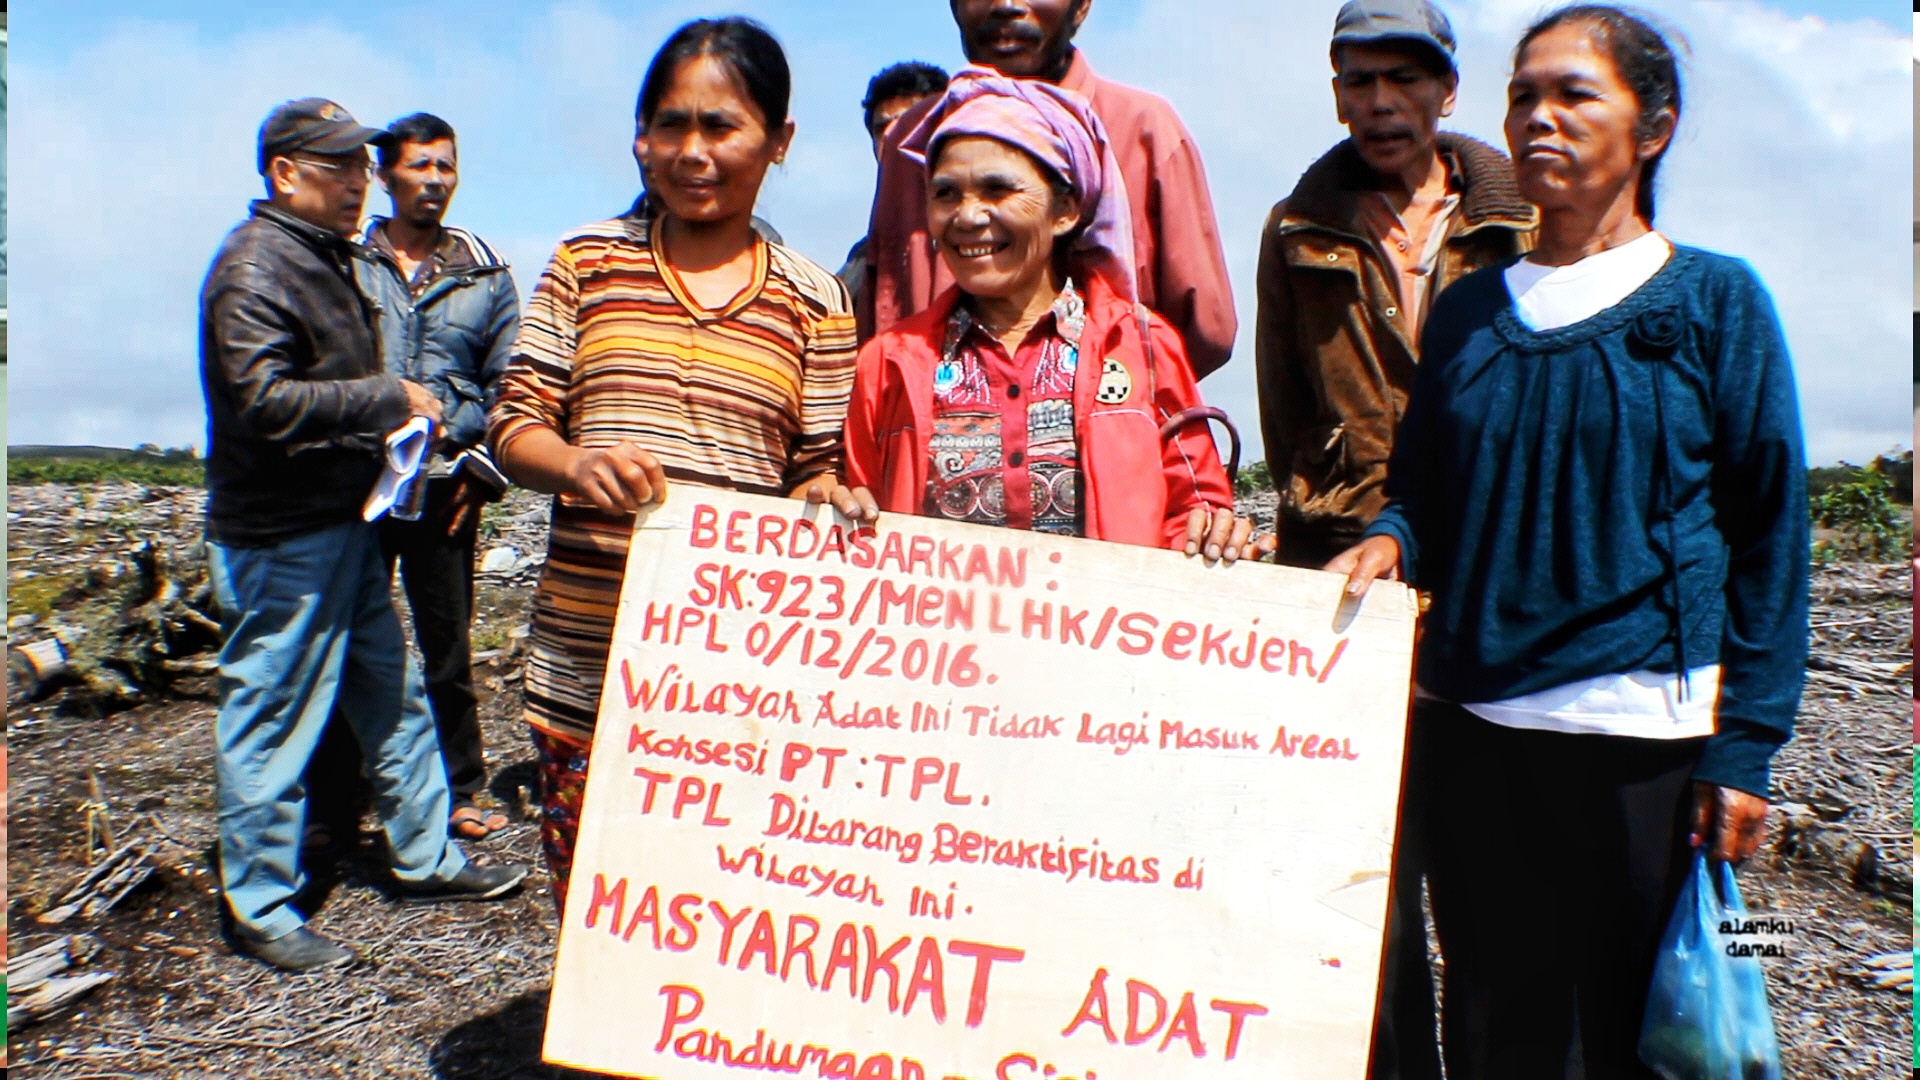 BERDASARKAN :
SK:923/MENLHK/Sekjen/
HPL 0/12/2016.
Wilayah Adat Ini Tidak Lagi Masuk Areal
Konsesi PT:TPL.
TPL Ditarang Beraktifitas di
Wilayah Ini.
MASYARAKAT ADAT
Pandumaan -
alamku
damai